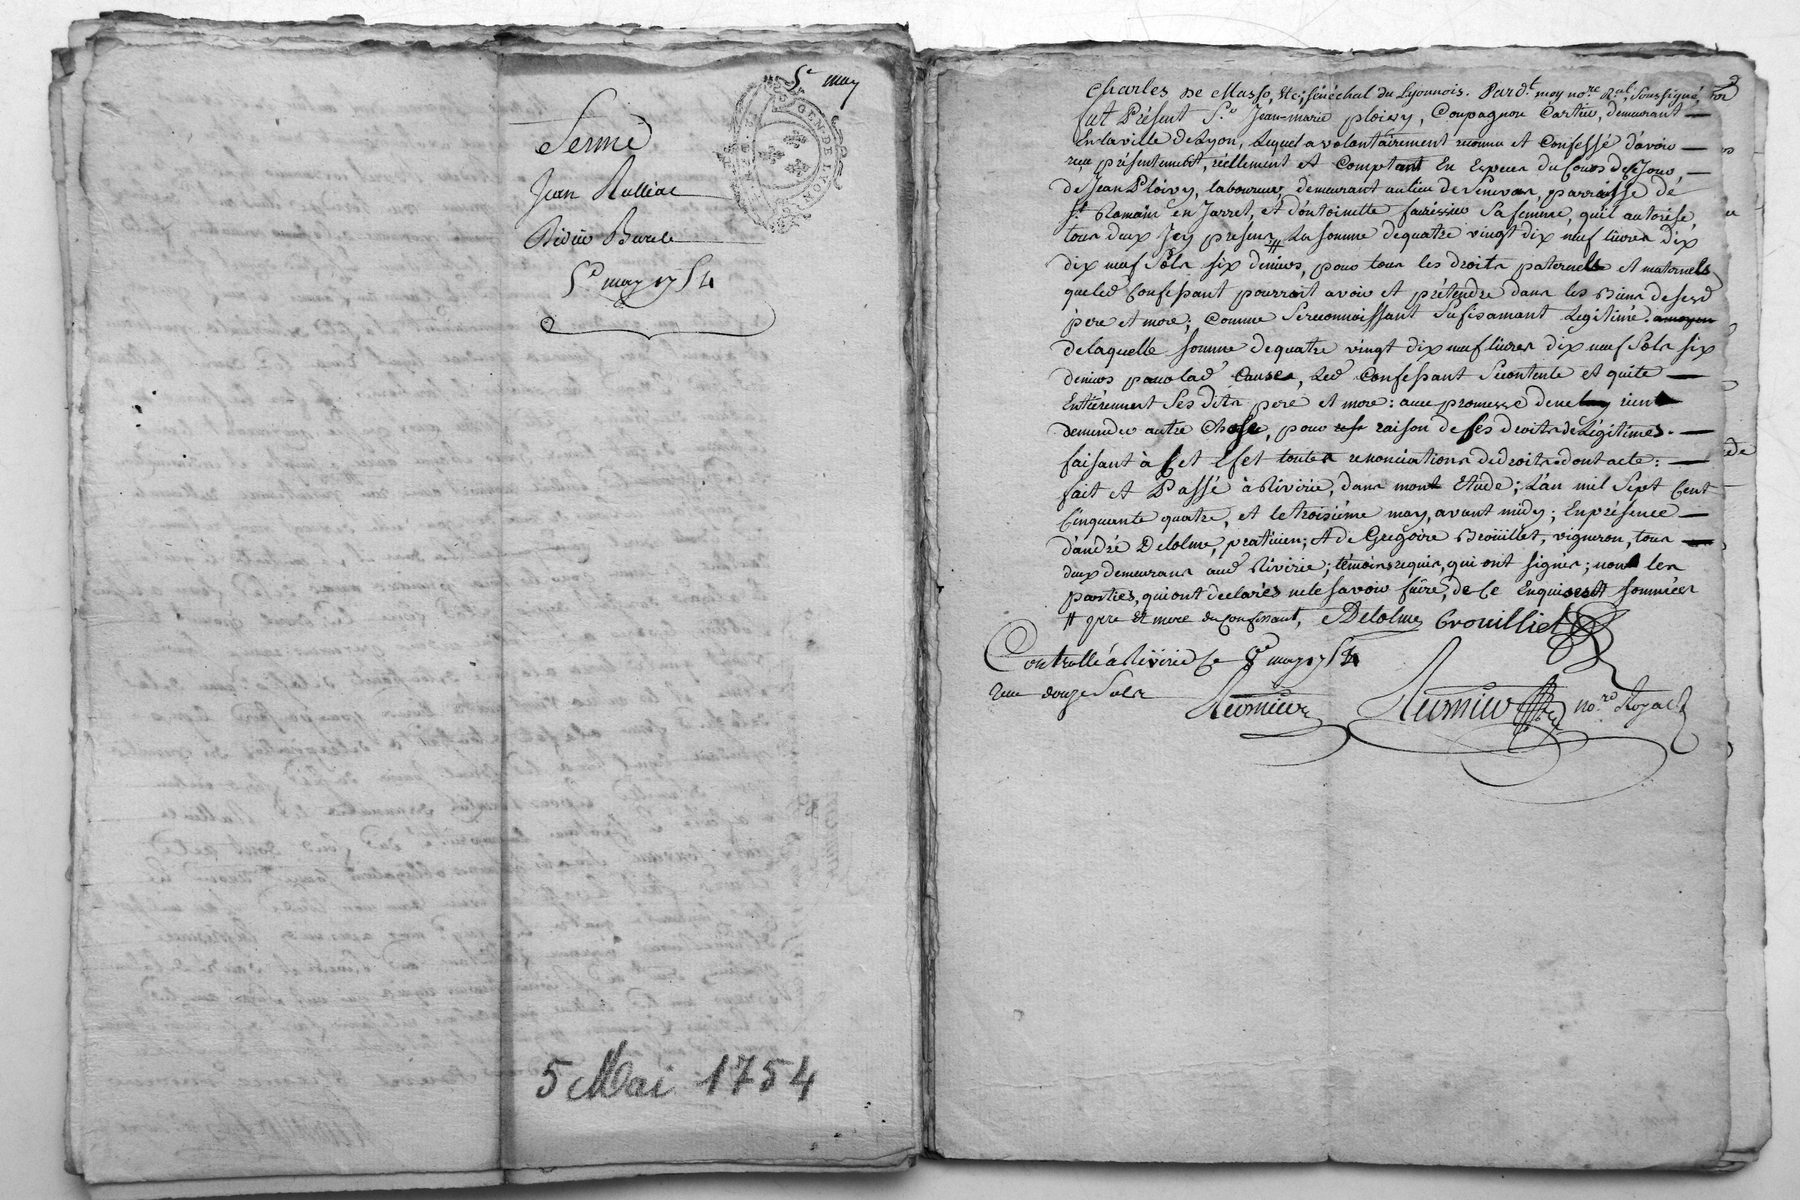 5e may
GEN·DE·LYON
ferme
Jean Rulliat
Didier
5e may 1754
5 Mai 1754
Charles De Masso, Etc; sénéchal du Lyonnois. Pard.t moy no.re R.al, soussigné,
fut Présent S.r Jean-marie ploivy, Compagnon Cartier, demeurant —
En la ville de Lyon, Lequel a volontairement reconnu et Confessé d'avoir —
reçu présentement, réellement et Comptant En Especes du Cours de ce Jour, —
de Jean Ploivy, laboureur, demeurant au lieu de parroisse de
S.t Romain en Jarret, et d'antoinette sa femme, qu'il autorise,
tous deux Jcy presens, # La somme de quatre vingt dix neuf livres dix
dix neuf Sols six deniers, pour tous les droits paternels et maternels
que led Confessant pourroit avoir et prétendre dans les Biens de sesd
pere et more; Comme Se reconnoissant Sufisamant Legitimé.
de laquelle somme de quatre vingt dix neuf livres dix neuf Sols six
deniers pour lad Cause, Led Confessant Se contente et quite —
Entièrement Ses dits pere et more: avec promesse de ne rien
demander autre Chose, pour raison de ses droits de Légitimes. —
faisant à Cet Efet toutes renonciations de droits. dont acte: —
fait et Passé à Rivirie, dans mont Etude; L'an mil Sept Cent
Cinquante quatre, et le troisième may, avant midy; En présence —
d'andré Delolme, praticien; et de Gregoire Brouillet, vigneron, tous
deux demeurans aud Rivirie; témoins requis, qui ont signés; non les
parties, qui ont declarés ne le savoir faire, de Ce Enquises et sommées
# pere Et mere du Confessant, Delolme Brouilliet
Controllé à Rivirie le 5e may 1754
reçu douze Sols
no.re Royal